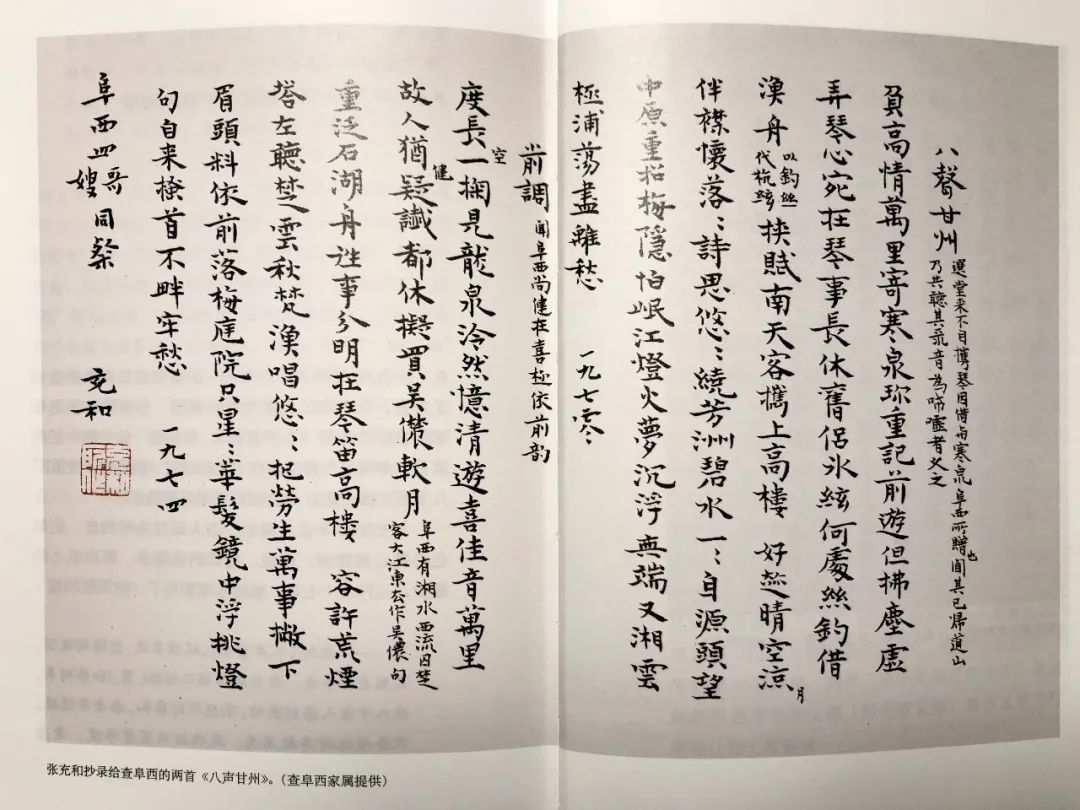 八聲甘州
選堂来不自携琴因借与寒泉阜西所贈也聞其已歸道山
乃共聽其音為唏噓者久之
負高情萬里寄寒泉珍重記前遊但拂塵虛
弄琴心宛在琴事長休舊侶氷絃何處絲釣借
漁舟以釣絲代杭絃挾賦南天客攜上高樓 好趂晴空涼月
伴襟懷落〻詩思悠〻繞芳洲碧水一〻自源頭望
中原重招梅隱怕岷江燈火夢沉浮無端又湘雲
極浦蕩盡離愁 一九七零〻
前調 聞阜西尚健在喜極依前韵
度長空一掬見龍泉泠然憶清遊喜佳音萬里
故人猶健疑讖都休擬買吳儂軟月
阜西有湘水西流因楚
客大江東去作吳儂句
重泛石湖舟往事分明在琴笛高樓 容許荒煙
塔左聽楚雲秋梵漁唱悠〻把勞生萬事撇下
眉頭料依前落梅庭院只星〻華髮鏡中浮挑燈
句自来搔首不畔牢愁 一九七四
阜西四哥嫂同粲 充和
张充和抄录给查阜西的两首《八声甘州》。（查阜西家属提供）